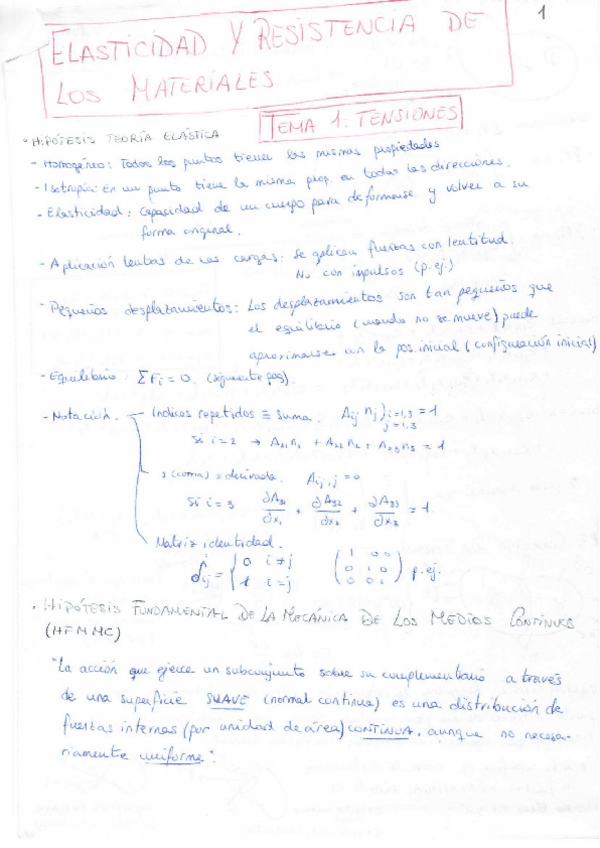 1
ELASTICIDAD Y RESISTENCIA DE
LOS MATERIALES
TEMA 1: TENSIONES
• HIPÓTESIS TEORÍA ELÁSTICA
- Homogéneo: Todos los puntos tienen las mismas propiedades
- Isotropía: En un punto tiene la misma prop. en todas las direcciones.
- Elasticidad: Capacidad de un cuerpo para deformarse y volver a su
forma original.
- Aplicación lentas de las cargas: Se aplican fuerzas con lentitud.
No con impulsos (p. ej.)
- Pequeños desplazamientos: Los desplazamientos son tan pequeños que
el equilibrio (cuando no se mueve) puede
aproximarse con la pos. inicial (configuración inicial)
- Equilibrio: ΣFi = 0. (siguiente pag).
- Notación. - Indices repetidos ≡ suma. Aij nj } i=1,3 = 1
j=1,3
si i=2 → A21 n1 + A22 n2 + A23 n3 = 1
, (coma) = derivada. Aij,j = 0
Si i=3 ∂A31/∂x1 + ∂A32/∂x2 + ∂A33/∂x3 = 1
Matriz identidad.
δij = { 0 i≠j
1 i=j
( 1 0 0
0 1 0
0 0 1 ) p. ej.
• HIPÓTESIS FUNDAMENTAL DE LA MECÁNICA DE LOS MEDIOS CONTINUOS
(HFMMC)
"La acción que ejerce un subconjunto sobre su complementario a través
de una superficie SUAVE (normal continua) es una distribución de
fuerzas internas (por unidad de área) CONTINUA, aunque no necesa-
riamente uniforme".